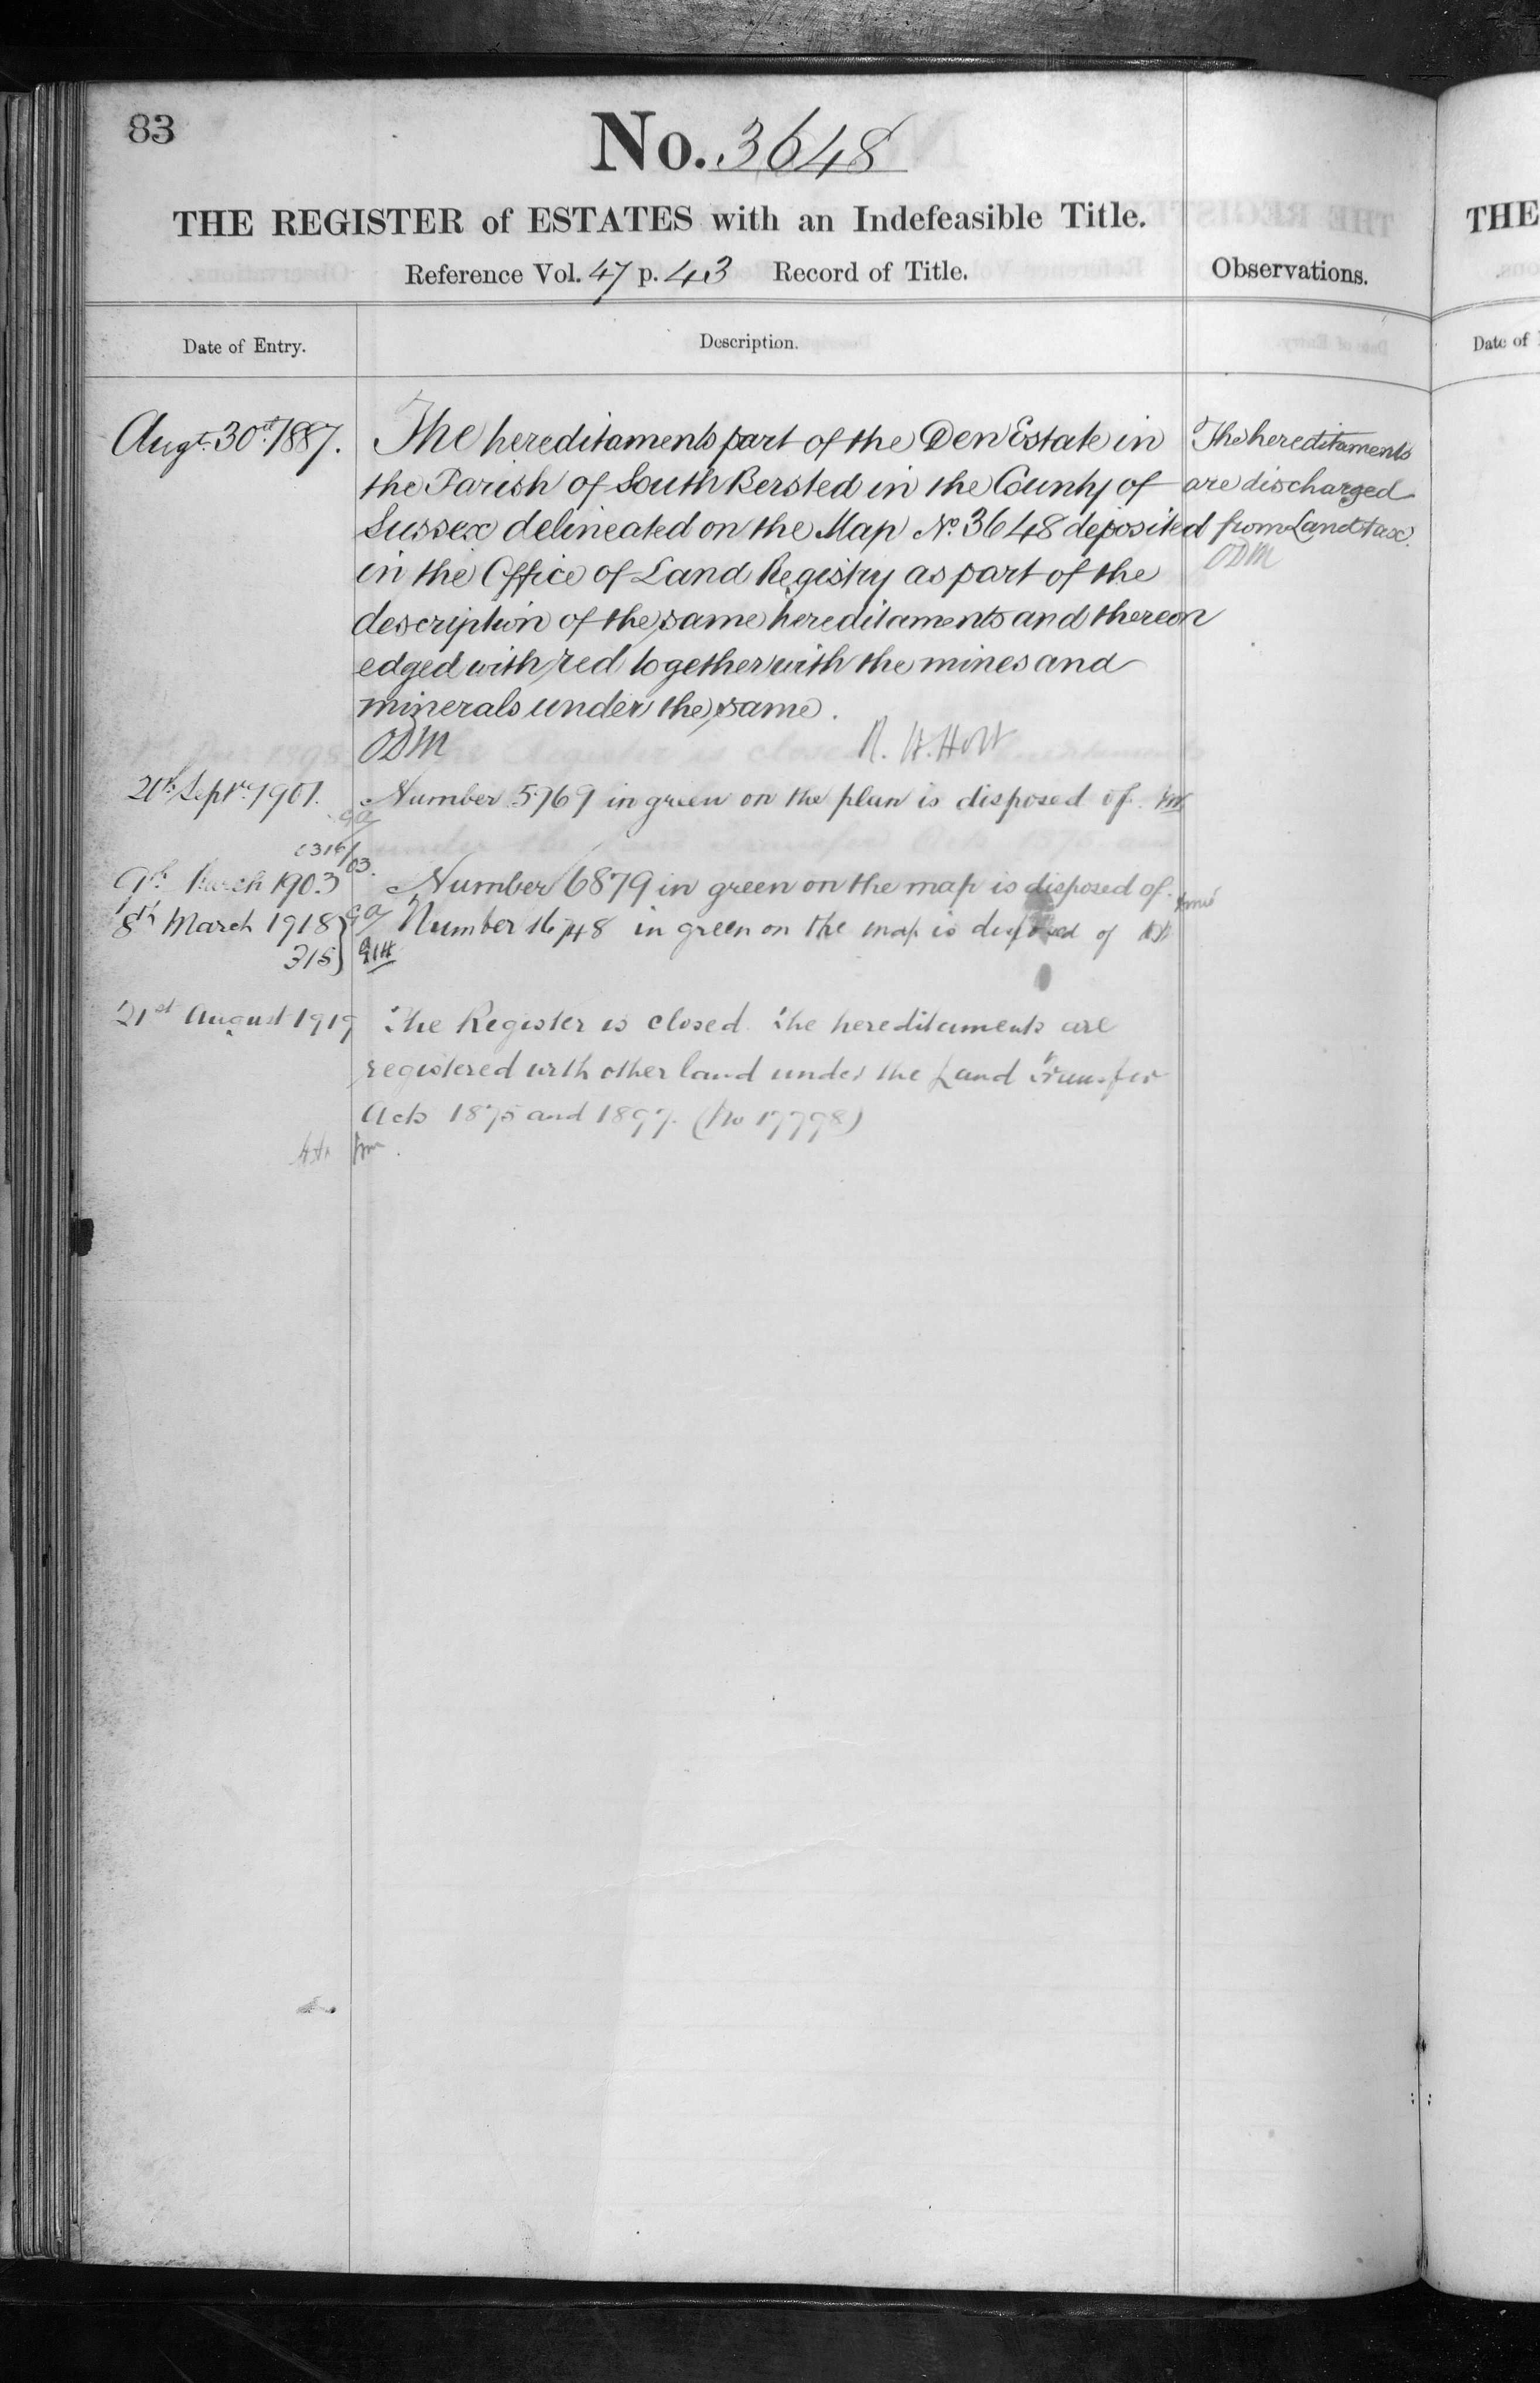 83
No. 3648
THE REGISTER of ESTATES with an Indefeasible Title.
Reference Vol. 47 p. 43 Record of Title.
Observations.
Date of Entry.
Description.
Augt. 30th 1887.
The hereditaments part of the Den Estate in
the Parish of South Bersted in the County of
Sussex delineated on the Map No. 3648 deposited
in the Office of Land Registry as part of the
description of the same hereditaments and thereon
edged with red together with the mines and
minerals under the same.
ODM
R. H. Holt
The hereditaments
are discharged
from Land tax.
ODM
20th Septr. 1901.
Number 5769 in green on the plan is disposed of.
9th March 1903
Number 6879 in green on the map is disposed of.
8th March 1918
315
Number 16748 in green on the map is disposed of
21st August 1919
The Register is closed. The hereditaments are
registered with other land under the Land Transfer
Acts 1875 and 1897. (No 17798)
THE
Date of